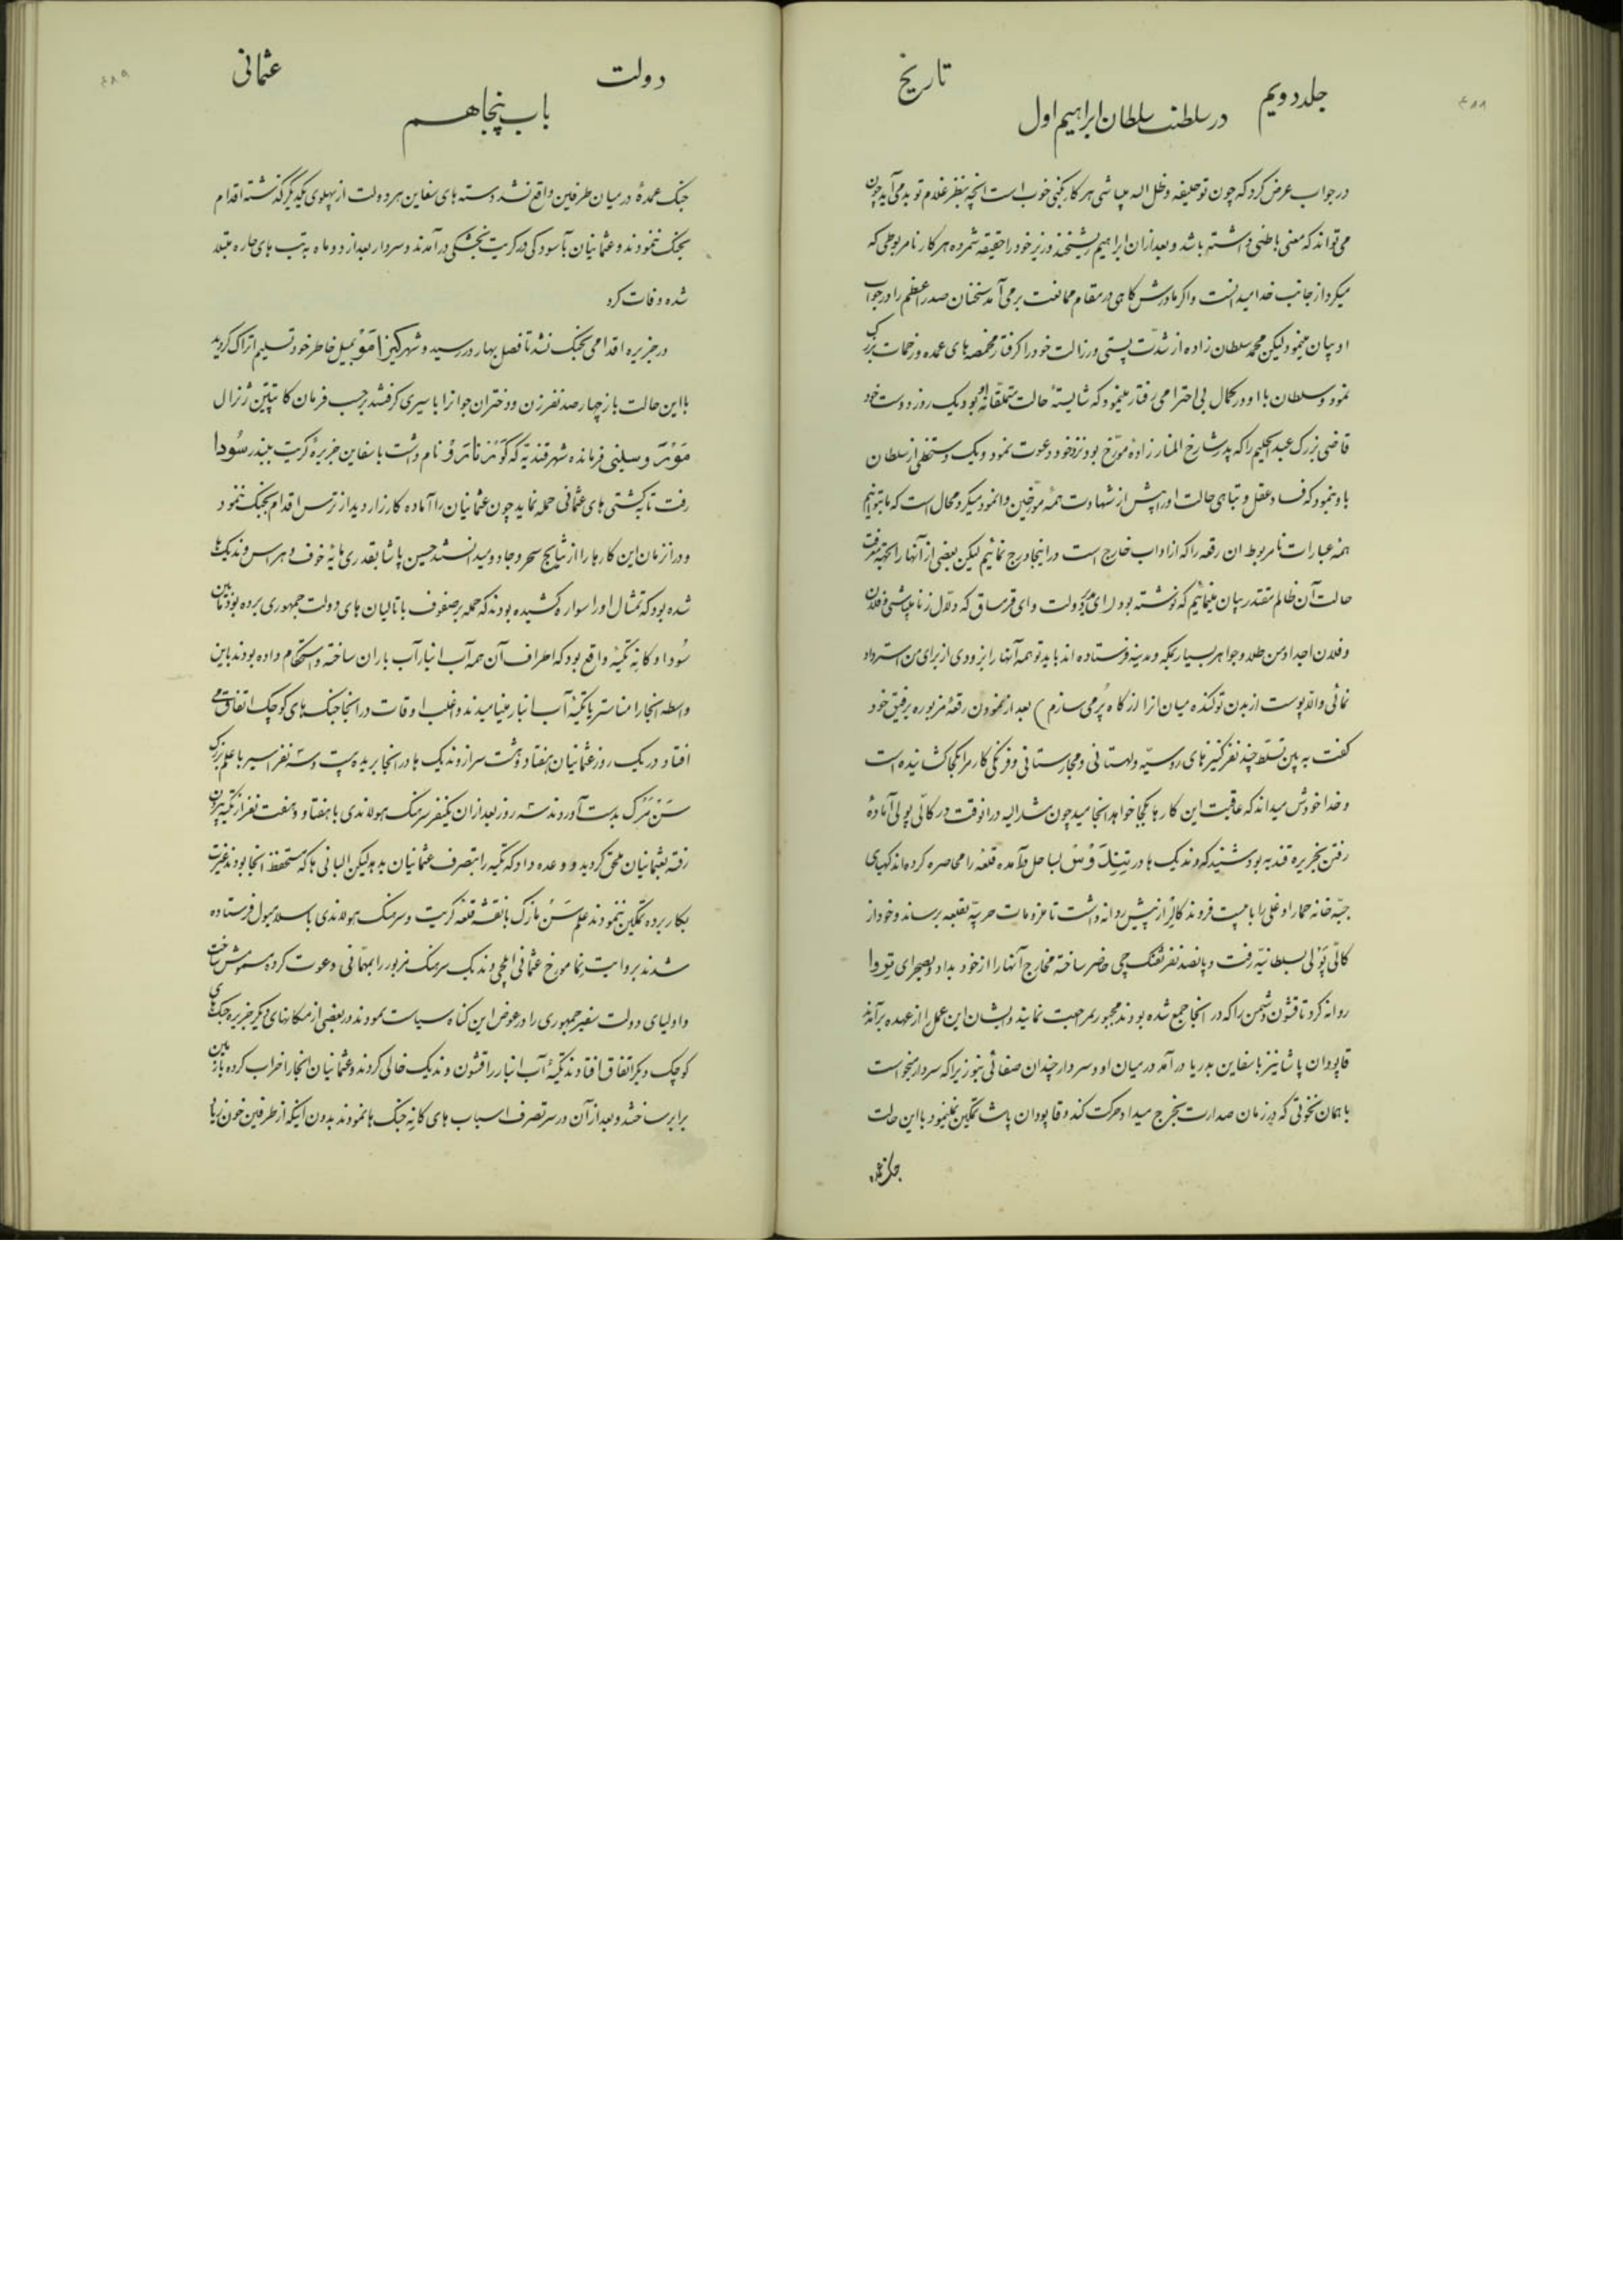 ۴۸۸
جلد دویم
تاریخ
در سلطنت سلطان ابراهیم اول
در جواب عرض کرد که چون تو خلیفه و ظل اله میباشی هر کار بکنی خوب است انچه بنظر غلام تو بد می آید چون
می تواند که معنی باطنی داشته باشد و بعد از ان ابراهیم ریشخند وزیر خود را حقیقه شمرده هر کار نامربوطی که
میکرد از جانب خدا میدانست و اگر مادرش کاهی در مقام ممانعت برمی آمد سخنان صدر اعظم را در جواب
او بیان مینمود لیکن محمد سلطان زاده از شدّت پستی و رزالت خود را کرفتار مخمصه های عمده و زحمات بزرک
نمود و سلطان با او در کمال بی احترامی رفتار مینمود که شایستهٔ حالت متملقانهٔ او بود یک روز دوست خود
قاضی بزرک عبدالحلیم را که پدر شارخ المنار زادهٔ مورّخ بود نزد خود دعوت نمود و یک دستخطی از سلطان
باو نمود که فساد عقل و تباهی حالت او را پیش از شهادت همهٔ مورّخین وانمود میکرد محال است که ما بتوانیم
همهٔ عبارات نامربوط ان رقعه را که از اداب خارج است در اینجا درج نمائیم لیکن بعضی از آنها را بجهته معرفت
حالت آن ظالم مقتدر بیان مینمائیم که نوشته بود (ای دولت و ای قرمساق که دلّال زنا میباشی و فلان
و فلان اجداد من طلا و جواهر بسیار بمکه و مدینه فرستاده اند باید تو همه آنها را بزودی از برای من استرداد
نمائی والّا پوست از بدن تو کنده میان انرا از کاه پُر می سازم) بعد از نمودن رقعهٔ مزبوره برفیق خود
کفت به بین تسلّط چند نفر کنیزهای روسیّه و لهستانی و مجارستانی و فرنکی کار مرا بکجا کشانیده است
و خدا خودش میداند که عاقبت این کارها بکجا خواهد انجامید چون مشارالیه در انوقت در کالی پولی آمادهٔ
رفتن بجزیره قندیه بود شنید که وندیک ها در تینِدُوس بساحل در آمده قلعه را محاصره کرده اند کهیای
جبّه خانه حمار اوغلی را با بیست فروند کالیر از پیش روانه داشت تا ملزومات حربیّه بقلعه برساند و خود از
کالی پولی بسلطانیّه رفت و پانصد نفر تفنک چی حاضر ساخته مخارج آنها را از خود بداد و بصحرای
روانه کرد تا قشون دشمن را که در انجا جمع شده بودند مجبور بمراجعت نمایند و ایشان این عمل را از عهده برآمدند
قاپودان پاشا نیز با سفاین بدریا در آمد در میان او و سردار چندان صفائی نبود زیرا که سردار میخواست
با همان نخوتی که در زمان صدارت بخرج میداد حرکت کند و قاپودان پاشا تمکین نمینمود با این حالت
جنک عمده
۴۸۹
دولت
عثمانی
باب پنجاهم
جنک عمدهٔ در میان طرفین واقع نشد دسته های سفاین هر دو دولت از پهلوی یکدیگر گذشته اقدام
بجنک ننمودند و عثمانیان بآسودکی در کریت بخشکی در آمدند و سردار بعد از دو ماه به تب های حاره مبتلا
شده وفات کرد
در جزیره اقدامی بجنک نشد تا فصل بهار در رسید و شهر بمیل خاطر خود تسلیم اتراک کردید
با این حالت باز چهار صد نفر زن و دختران جوانرا باسیری کرفتند برحسب فرمان کاپیتین ژنرال
وسلینی فرمانده شهر قندیّه که نام داشت با سفاین جزیرهٔ کریت ببندر سُودا
رفت تا بکشتی های عثمانی حمله نماید چون عثمانیان را آماده کارزار دید از ترس اقدام بجنک ننمود
و در انزمان این کارها را از نتایج سحر و جادو میدانستند حسین پاشا بقدری مایهٔ خوف و هراس وندیک ها
شده بود که تمثال او را سواره کشیده بودند که حمله بر صفوف باتالیان های دولت جمهوری برده بود مابین
سُودا و کانِه تکیهٔ واقع بود که اطراف آن همه آب انبار آب باران ساخته و استحکام داده بودند باین
واسطه انجا را مناستر یا تکیهٔ آب انبار مینامیدند و اغلب اوقات در انجا جنک های کوچک اتفاق می
افتاد در یک روز عثمانیان هفتاد و هشت سر از وندیک ها در انجا بریده بیست و سه نفر اسیر با علم بزرک
سَنْ مَرْک بدست آوردند سه روز بعد از ان یکنفر سرهنک هولاندی با هفتاد و هفت نفر از تکیه بیرون
رفته بعثمانیان ملحق کردید و وعده داد که تکیه را بتصرف عثمانیان بدهد لیکن البانی ها که مستحفظ انجا بودند غیرت
بکار برده تمکین ننمودند علم سَنْ مارک با نقشه قلعه کریت و سرهنک هولاندی باسلامبول فرستاده
شدند بروایت نعما مورخ عثمانی ایلچی وندیک سرهنک مزبور را بمهمانی دعوت کرده مسمومش ساخت
و اولیای دولت سفیر جمهوری را در عوض این کناه سیاست نمودند در بعضی از مکانهای دیکر جزیره جنک های
کوچک دیکر اتفاق افتاد تکیهٔ آب انبار را قشون وندیک خالی کردند و عثمانیان انجا را خراب کرده با زمین
برابر ساختند و بعد از آن در سر تصرف اسیاب های کانِه جنک ها نمودند بدون اینکه از طرفین خون زیاد